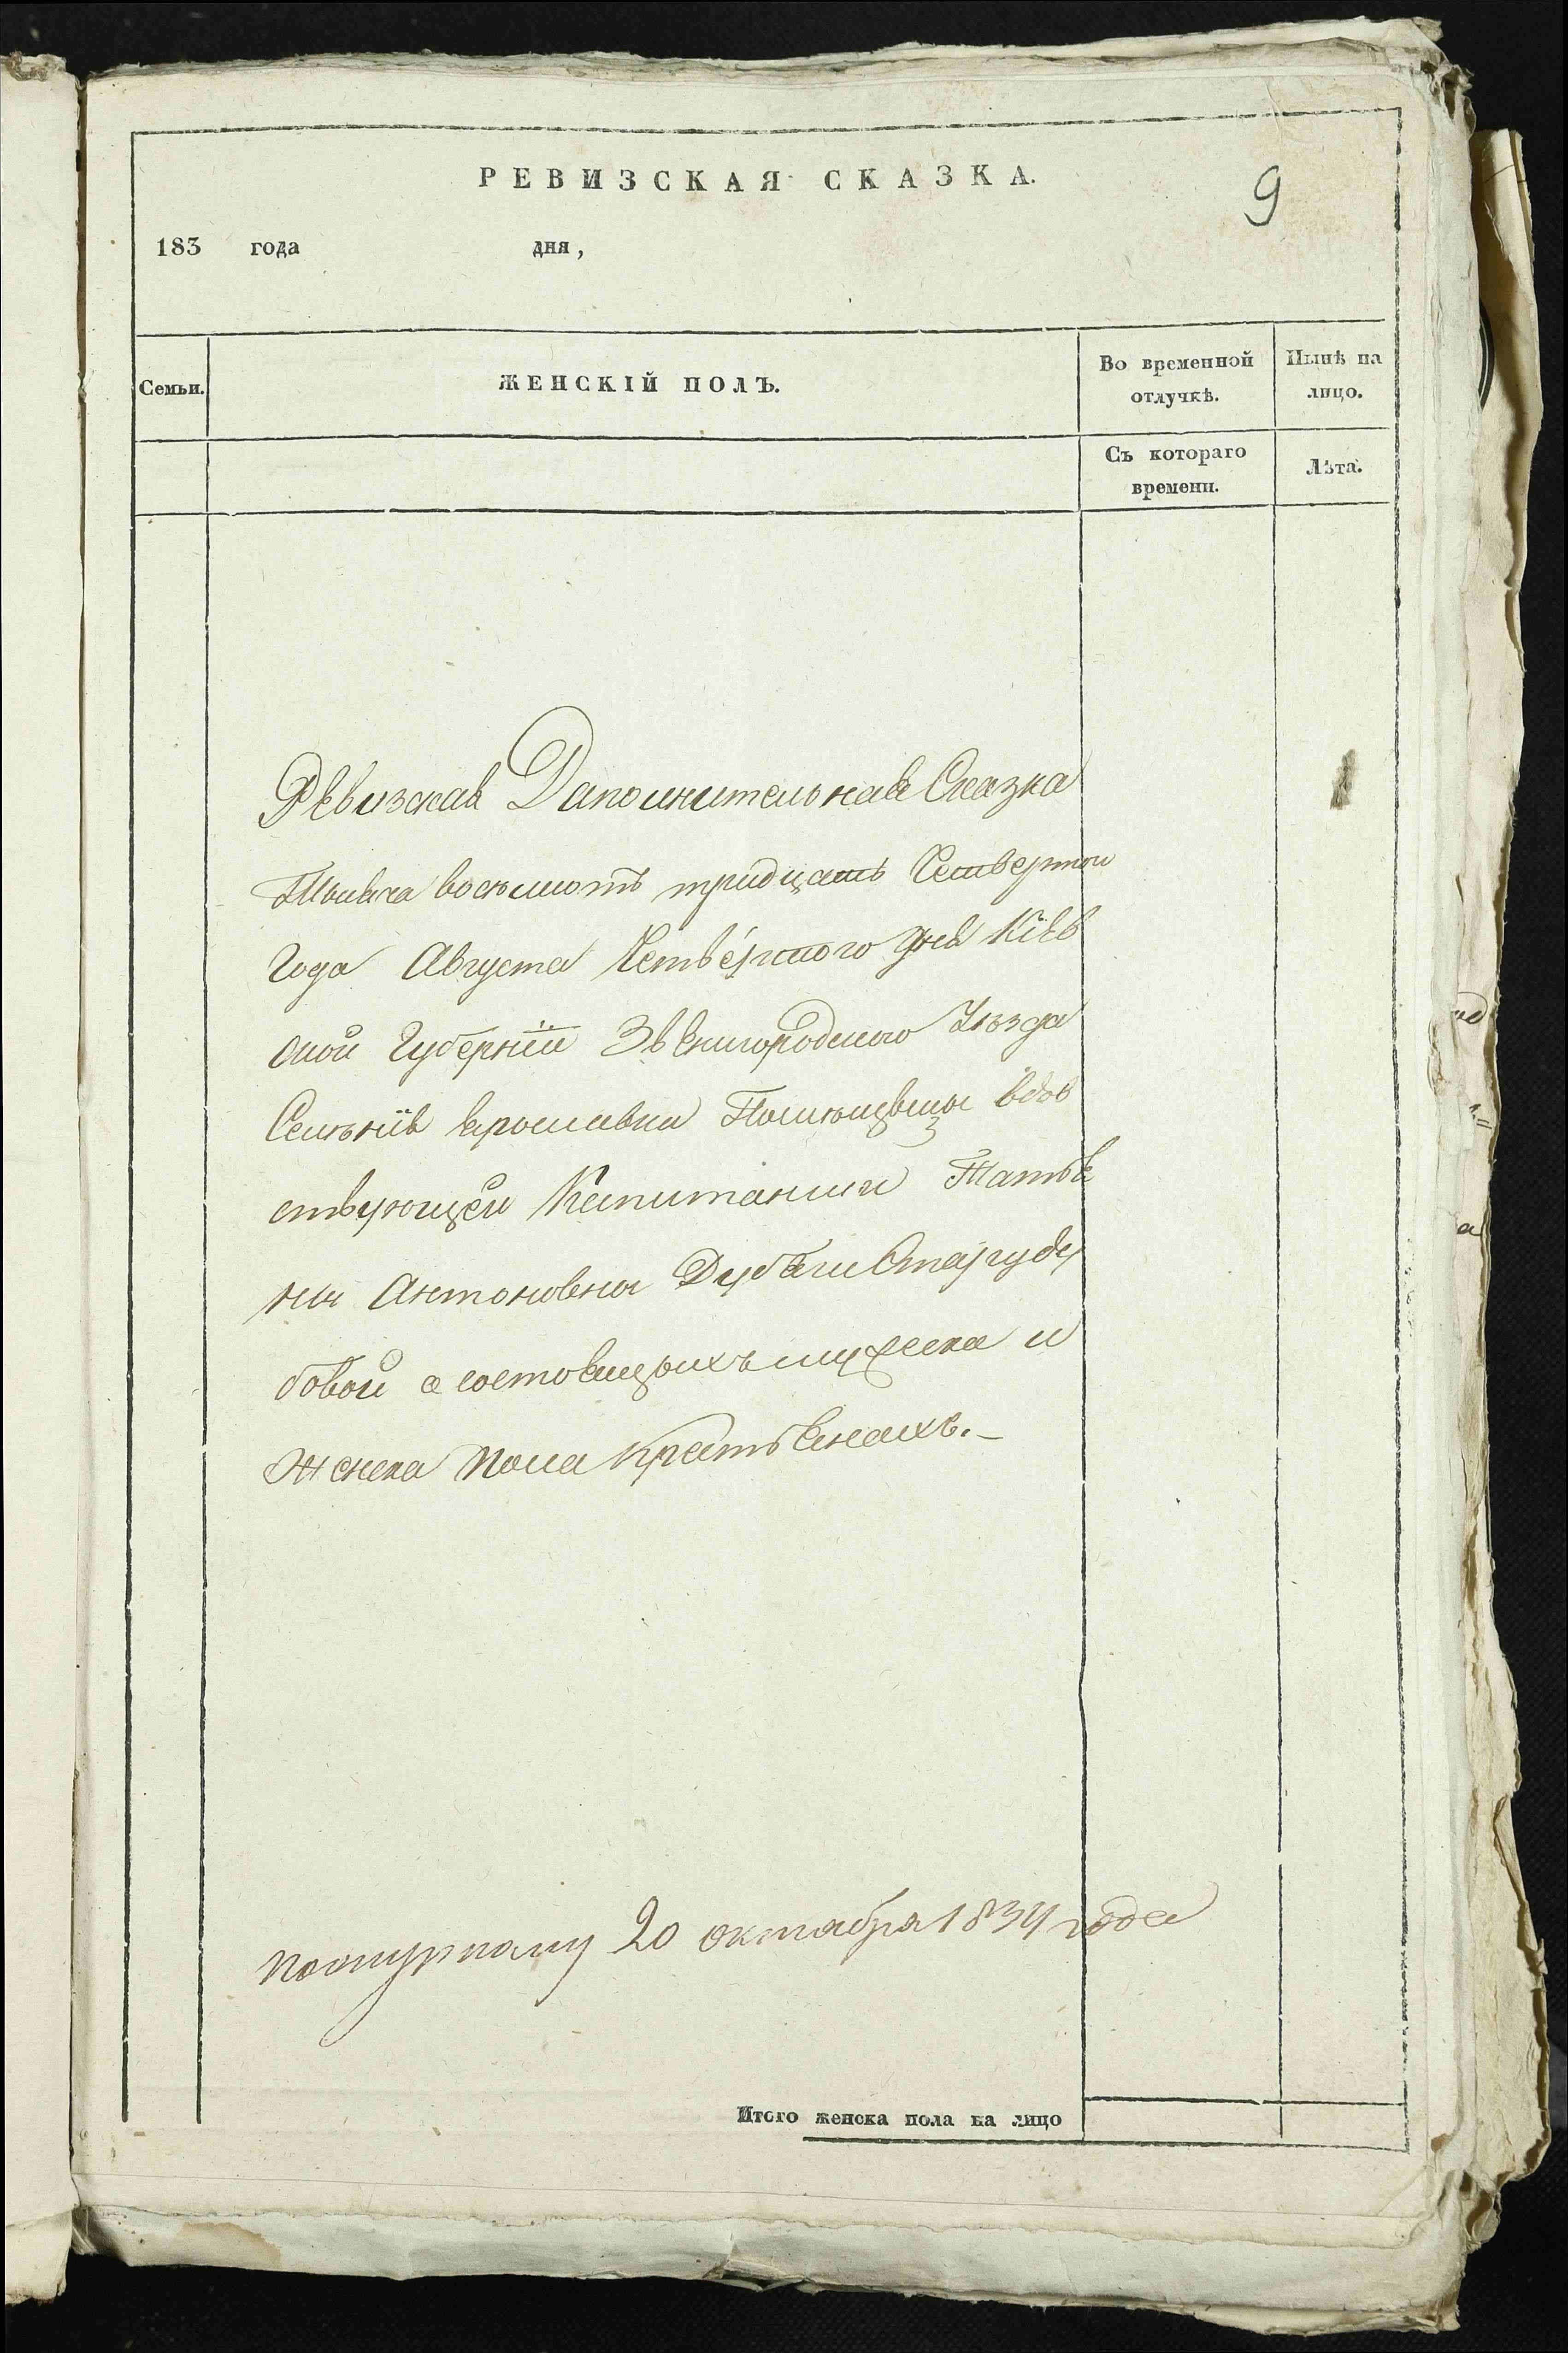 РЕВИЗСКАЯ СКАЗКА.
9
183 года дня,
Семьи.
ЖЕНСКІЙ ПОЛЪ.
Во временной отлучкѣ.
Нынѣ на лицо.
Съ котораго времени.
Лѣта.
Ревизская Даполнительная Сказка
Тысяча восемьсотъ тридцать Четвертои
Года Августа Четвертого дня Кіев
ской Губерніи Звенигородского Уѣзда
Селенія Ярославки Помѣщицы вдов
ствующей Капитанши Татья
ны Антоновны
бовой а состоящыхъ мужеска и
Женска пола Крестьянахъ.
20 октября 1834 года
Итого женска пола на лицо